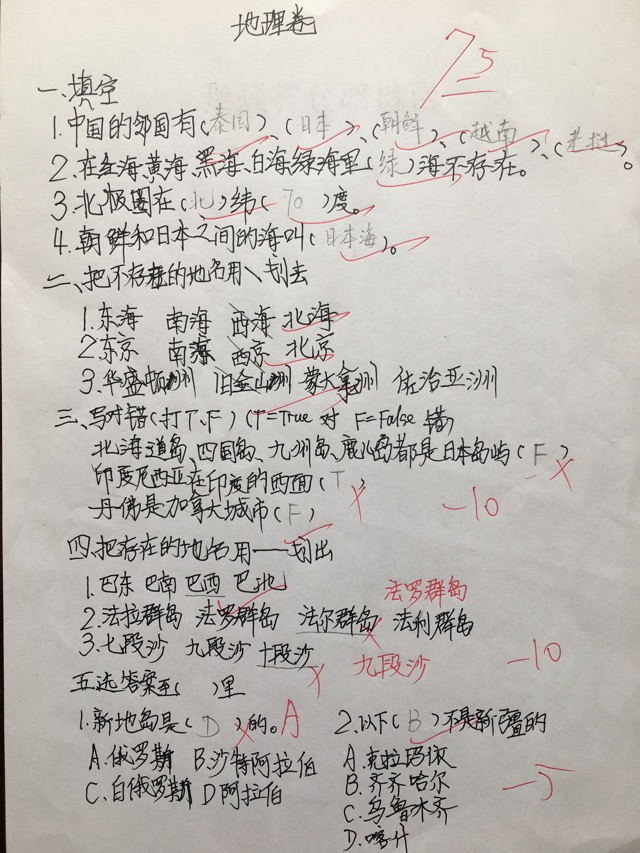 地理卷
75
一、填空
1.中国的邻国有(泰国)、(日本)、(朝鲜)、(越南)、(老挝)。
2.在红海、黄海、黑海、白海绿海里(绿)海不存在。
3.北极圈在(北)纬(70)度。
4.朝鲜和日本之间的海叫(日本海)。
二、把不存在的地名用\划去
1.东海 南海 西海 北海
2.东京 南海 西京 北京
3.华盛顿洲 旧金山洲 蒙大拿洲 佐治亚洲
三、写对错(打T、F)(T=True 对 F=False 错)
北海道岛、四国岛、九州岛、鹿儿岛都是日本岛屿(F)
印度尼西亚在印度的西面(T)
丹佛是加拿大城市(F)
-10
四、把存在的地名用——划出
1.巴东 巴南 巴西 巴北
法罗群岛
2.法拉群岛 法罗群岛 法尔群岛 法利群岛
3.七段沙 九段沙 十段沙
九段沙
-10
五、选答案至( )里
1.新地岛是(D)的。A
A.俄罗斯 B.沙特阿拉伯
C.白俄罗斯 D阿拉伯
2.以下(B)不是新疆的
A.克拉玛依
B.齐齐哈尔
C.乌鲁木齐
D.喀什
-5